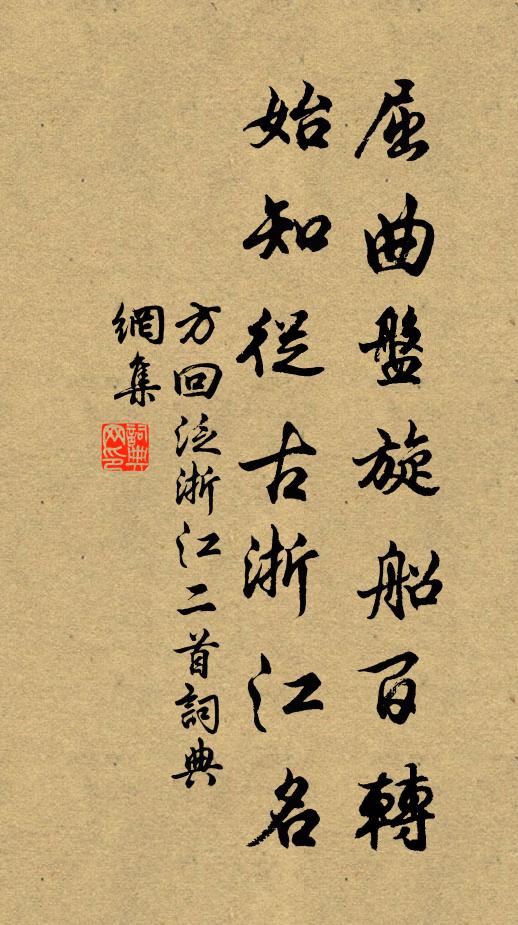 屈曲盤旋船百轉
始知從古浙江名
方回泛浙江二首詞典
網集
詞典
网印